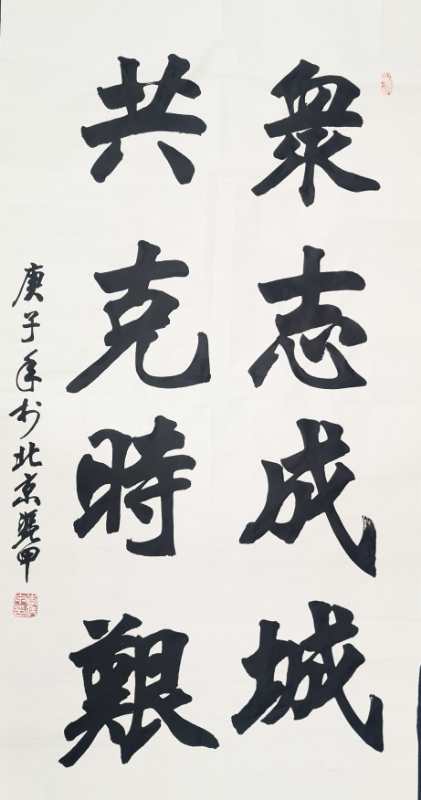 衆志成城
共克時艱
庚子年於北京